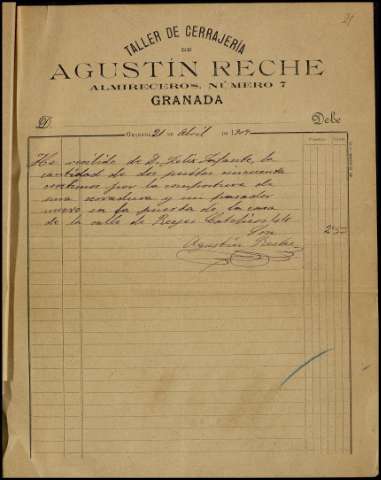 21
TALLER DE CERRAJERÍA
DE
AGUSTÍN RECHE
ALMIRECEROS, NÚMERO 7
GRANADA
D. Debe
GRANADA 21 DE Abril DE
He recibido de D. Felix Infante, la
cantidad de dos pesetas cincuenta
centimos por la compostura de
una cerradura y un pasador
nuevo en la puerta de la casa
de la calle de Reyes Catolicos
Son 2 50
Agustin Reche